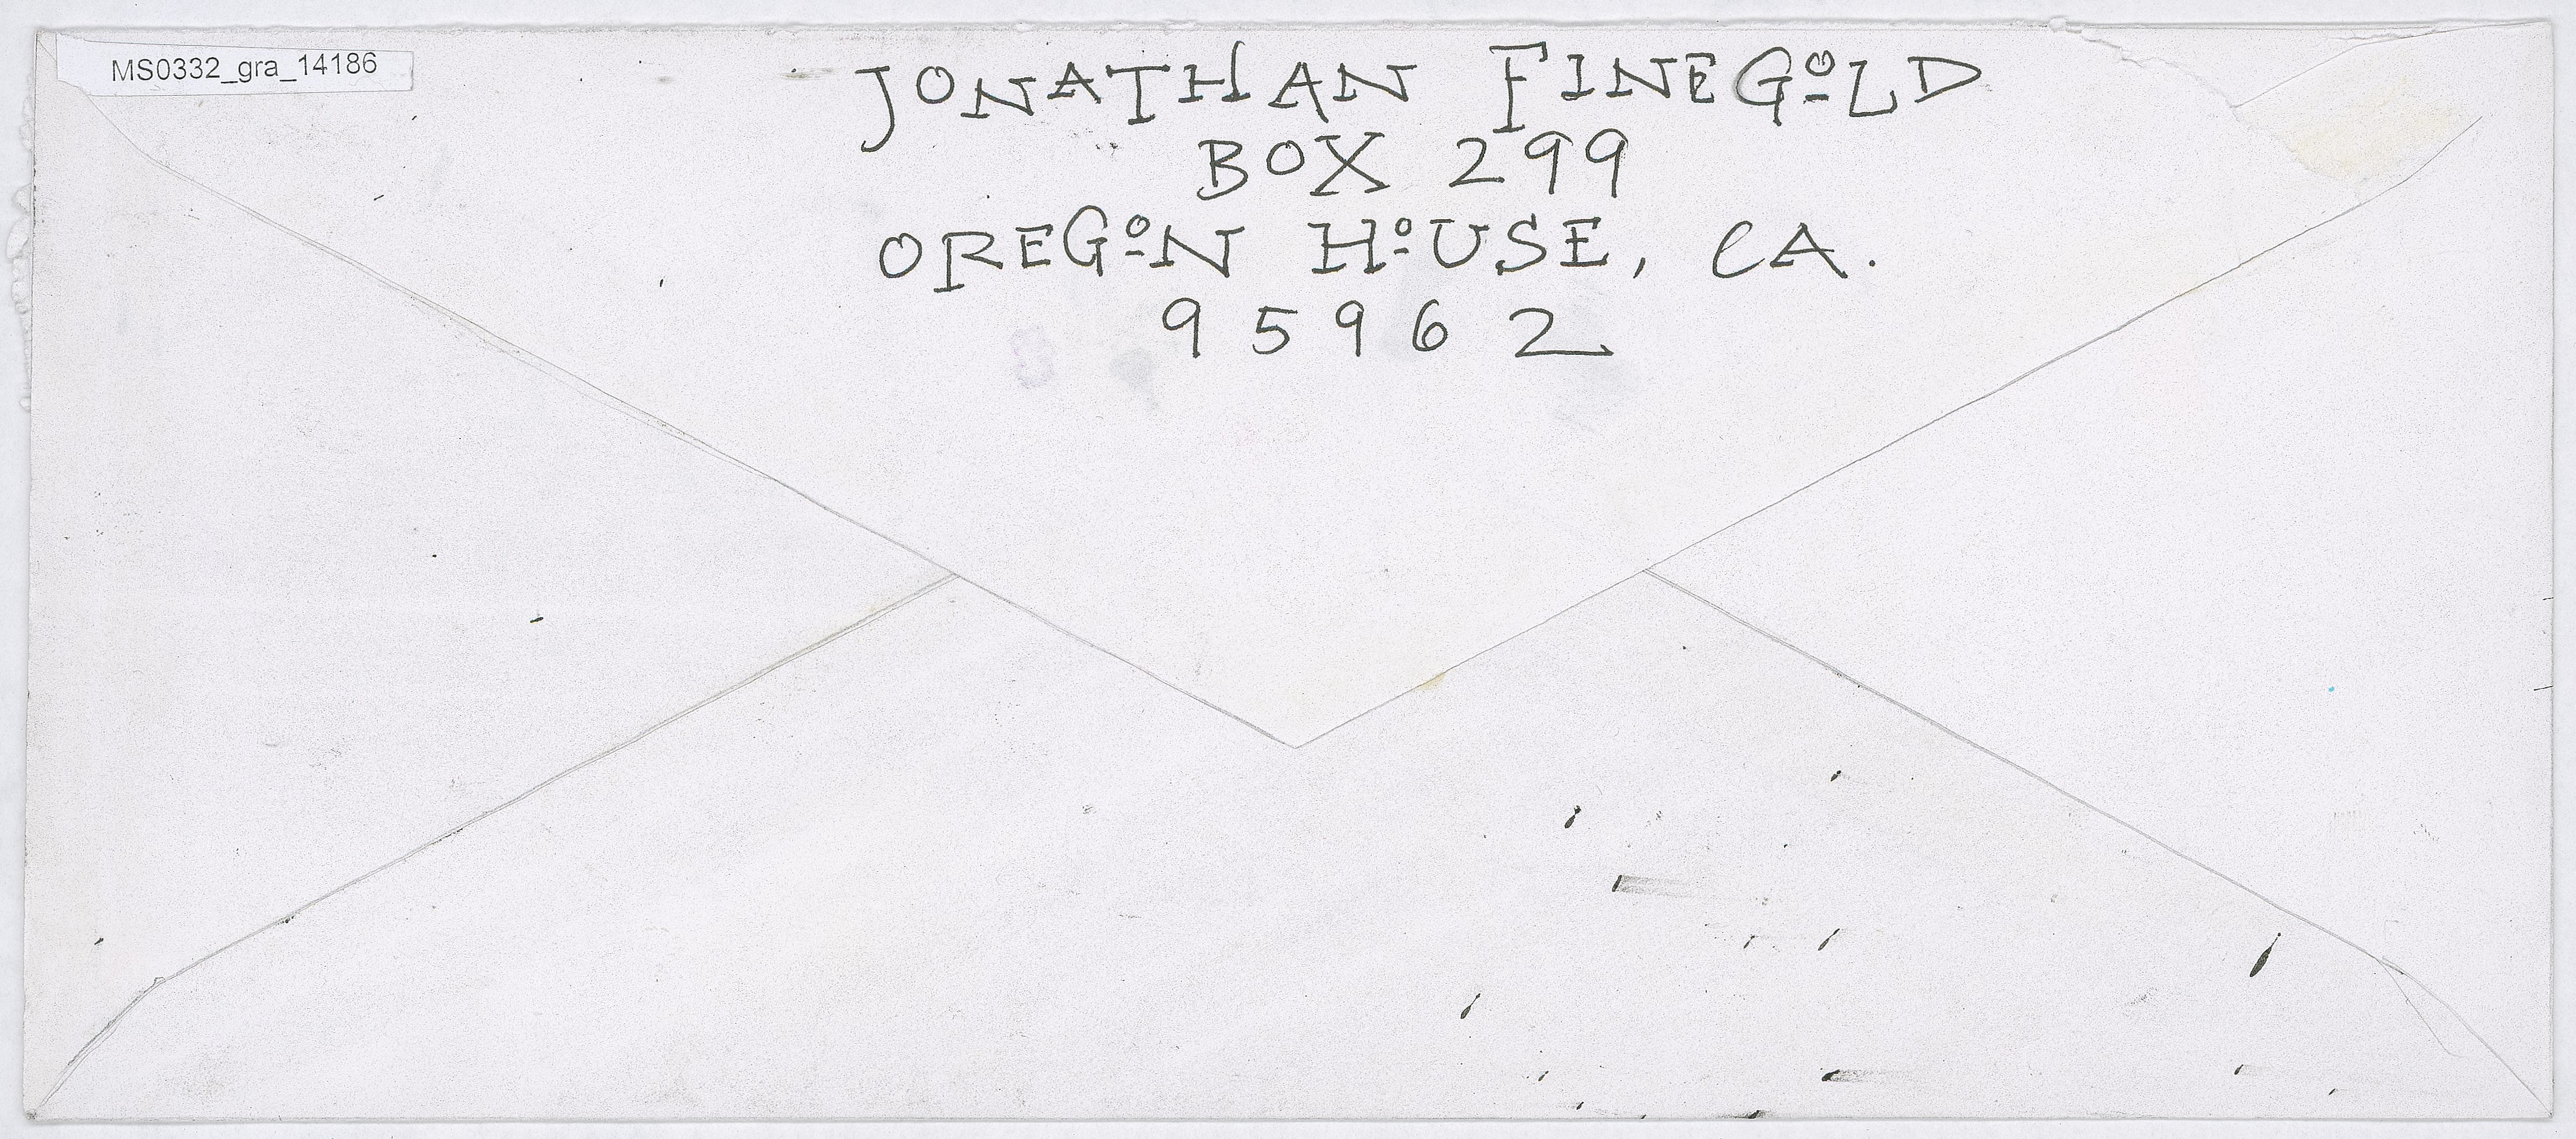 MS0332_gra_14186
JONATHAN FINEGOLD
BOX 299
OREGON HOUSE, CA.
95962